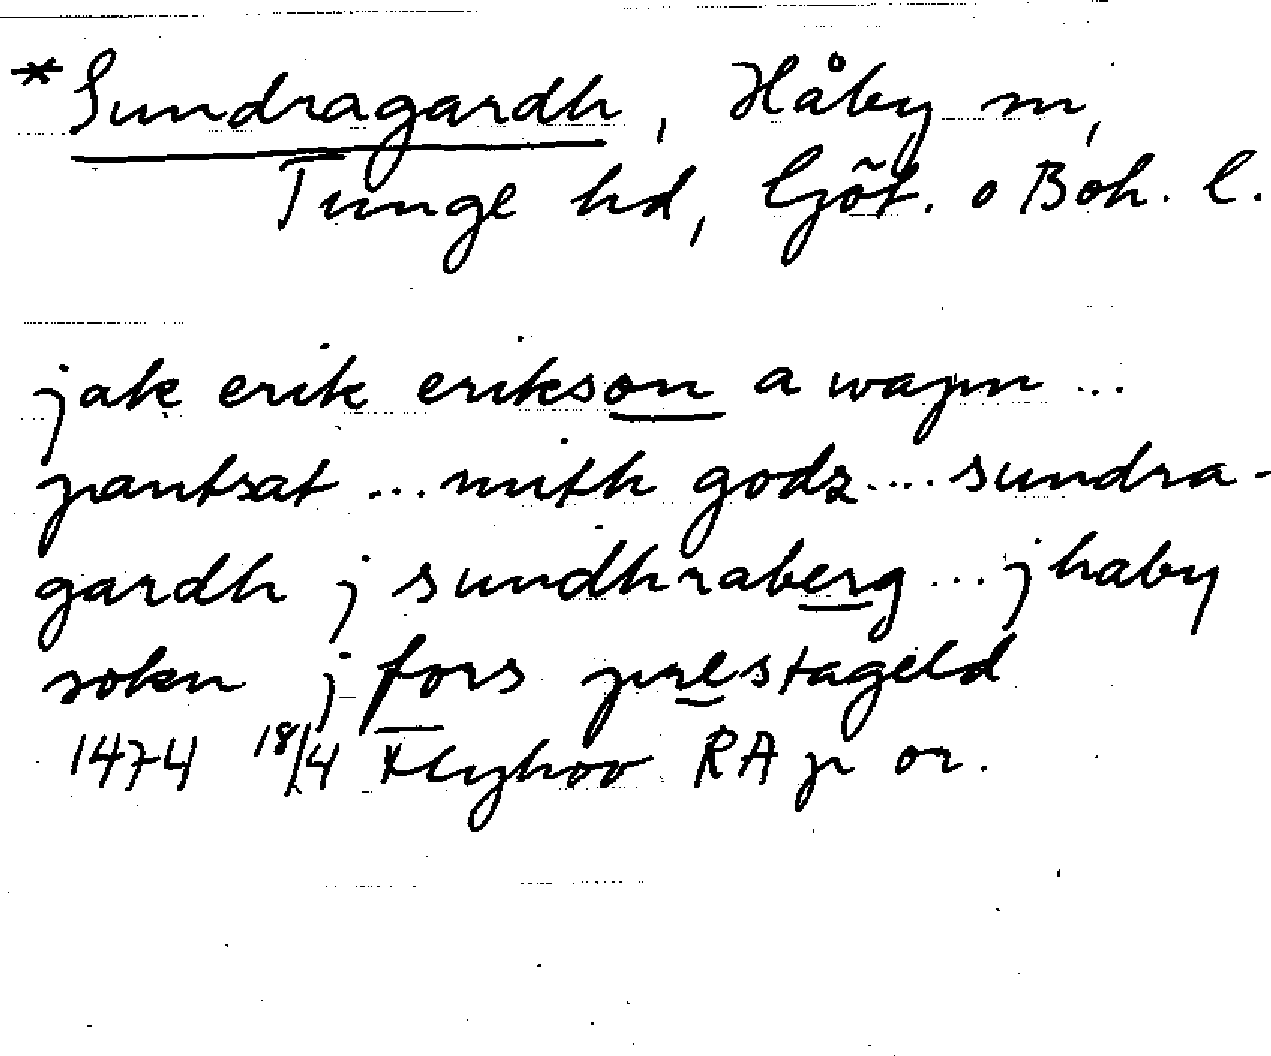 *Sundragardh, Håby sn,
Tunge hd, Göt. o Boh. l.
jak erik erikson a wapn ...
pantsat ... mith godz .... sundra-
gardh j sundhraberg ... j haby
sokn j fors prestageld
1474 18/4 RA p or.